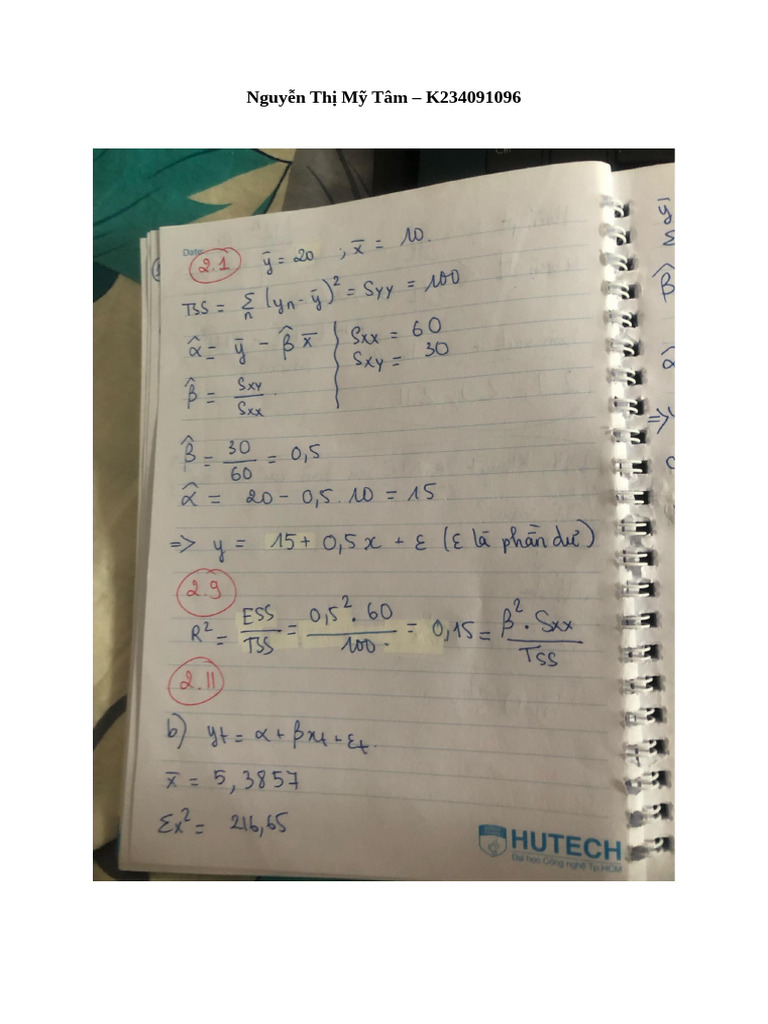 Nguyễn Thị Mỹ Tâm – K234091096
Date:
2.1 ȳ = 20 ; x̄ = 10.
TSS = Σn (yn - ȳ)² = Syy = 100
α̂ = ȳ - β̂ x̄
Sxx = 60
Sxy = 30
β̂ = Sxy / Sxx
β̂ = 30/60 = 0,5
α̂ = 20 - 0,5.10 = 15
=> y = 15 + 0,5x + ε (ε là phần dư)
2.9
R² = ESS/TSS = 0,5².60 / 100. = 0,15 = β̂².Sxx / TSS
2.11
b) yt = α + βxt + εt.
x̄ = 5,3857
Σx² = 216,65
HUTECH
Đại học Công nghệ Tp.HCM
ȳ
Σ
β̂
α̂
=>